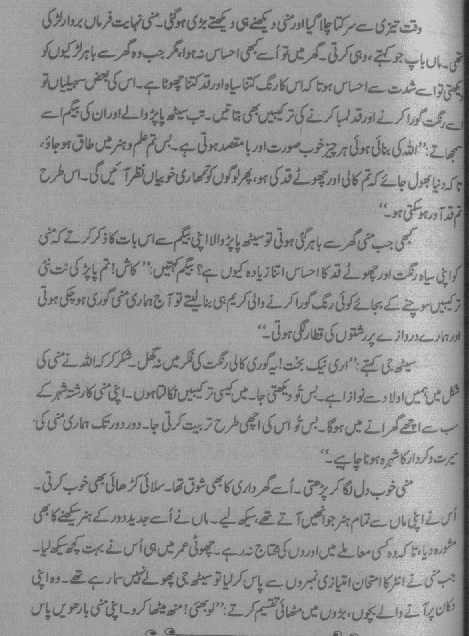 وقت تیزی سے سرکتا چلا گیا اور منی دیکھتے ہی دیکھتے بڑی ہوگئی۔ منی نہایت فرماں بردار لڑکی
تھی۔ ماں باپ جو کہتے، وہی کرتی۔ گھر میں تو اُسے کبھی احساس نہ ہوا، مگر جب وہ گھر سے باہر لڑکیوں کو
دیکھتی تو اسے شدت سے احساس ہوتا کہ اس کا رنگ کتنا سیاہ اور قد کتنا چھوٹا ہے۔ اس کی بعض سہیلیاں تو
اسے رنگت گورا کرنے اور قد لمبا کرنے کی ترکیبیں بھی بتاتیں۔ تب سیٹھ پاپڑ والے اور ان کی بیگم اسے
سمجھاتے: ”اللہ کی بنائی ہوئی ہر چیز خوب صورت اور بامقصد ہوتی ہے۔ بس تم علم و ہنر میں طاق ہو جاؤ،
تاکہ دنیا بھول جائے کہ تم کالی اور چھوٹے قد کی ہو، پھر لوگوں کو تمھاری خوبیاں نظر آئیں گی۔ اس طرح
تم قد آور ہو سکتی ہو۔“
کبھی جب منی گھر سے باہر گئی ہوتی تو سیٹھ پاپڑ والا اپنی بیگم سے اس بات کا ذکر کرتے کہ منی
کو اپنی سیاہ رنگت اور چھوٹے قد کا احساس اتنا زیادہ کیوں ہے؟ بیگم کہتیں: ”کاش! تم پاپڑ کی نت نئی
ترکیبیں سوچنے کے بجائے کوئی رنگ گورا کرنے والی کریم ہی بنا لیتے تو آج ہماری منی گوری ہو چکی ہوتی
اور ہمارے دروازے پر رشتوں کی قطار لگی ہوتی۔“
سیٹھ جی کہتے: ”اری نیک بخت! یہ گوری کالی رنگت کی فکر میں نہ گھل۔ شکر کر کہ اللہ نے منی کی
شکل میں ہمیں اولاد سے نوازا ہے۔ بس تُو دیکھتی جا۔ میں کیسی ترکیبیں نکالتا ہوں۔ اپنی منی کا رشتہ شہر کے
سب سے اچھے گھرانے میں ہوگا۔ بس تُو اس کی اچھی طرح تربیت کرتی جا۔ دور دور تک ہماری منی کی
سیرت و کردار کا شہرہ ہونا چاہیے۔“
منی خوب دل لگا کر پڑھتی۔ اُسے گھرداری کا بھی شوق تھا۔ سلائی کڑھائی بھی خوب کرتی۔
اُس نے اپنی ماں سے تمام ہنر جو انھیں آتے تھے، سیکھ لیے۔ ماں نے اُسے جدید دور کے ہنر سیکھنے کا بھی
مشورہ دیا، تاکہ وہ کسی معاملے میں اوروں کی محتاج نہ رہے۔ چھوٹی عمر میں ہی اُس نے بہت کچھ سیکھ لیا۔
جب منی نے انٹر کا امتحان امتیازی نمبروں سے پاس کر لیا تو سیٹھ جی پھولے نہیں سما رہے تھے۔ وہ اپنی
دکان پر آنے والے بچوں، بڑوں میں مٹھائی تقسیم کرتے: ”لو بھئی! منھ میٹھا کرو۔ اپنی منی بارھویں پاس